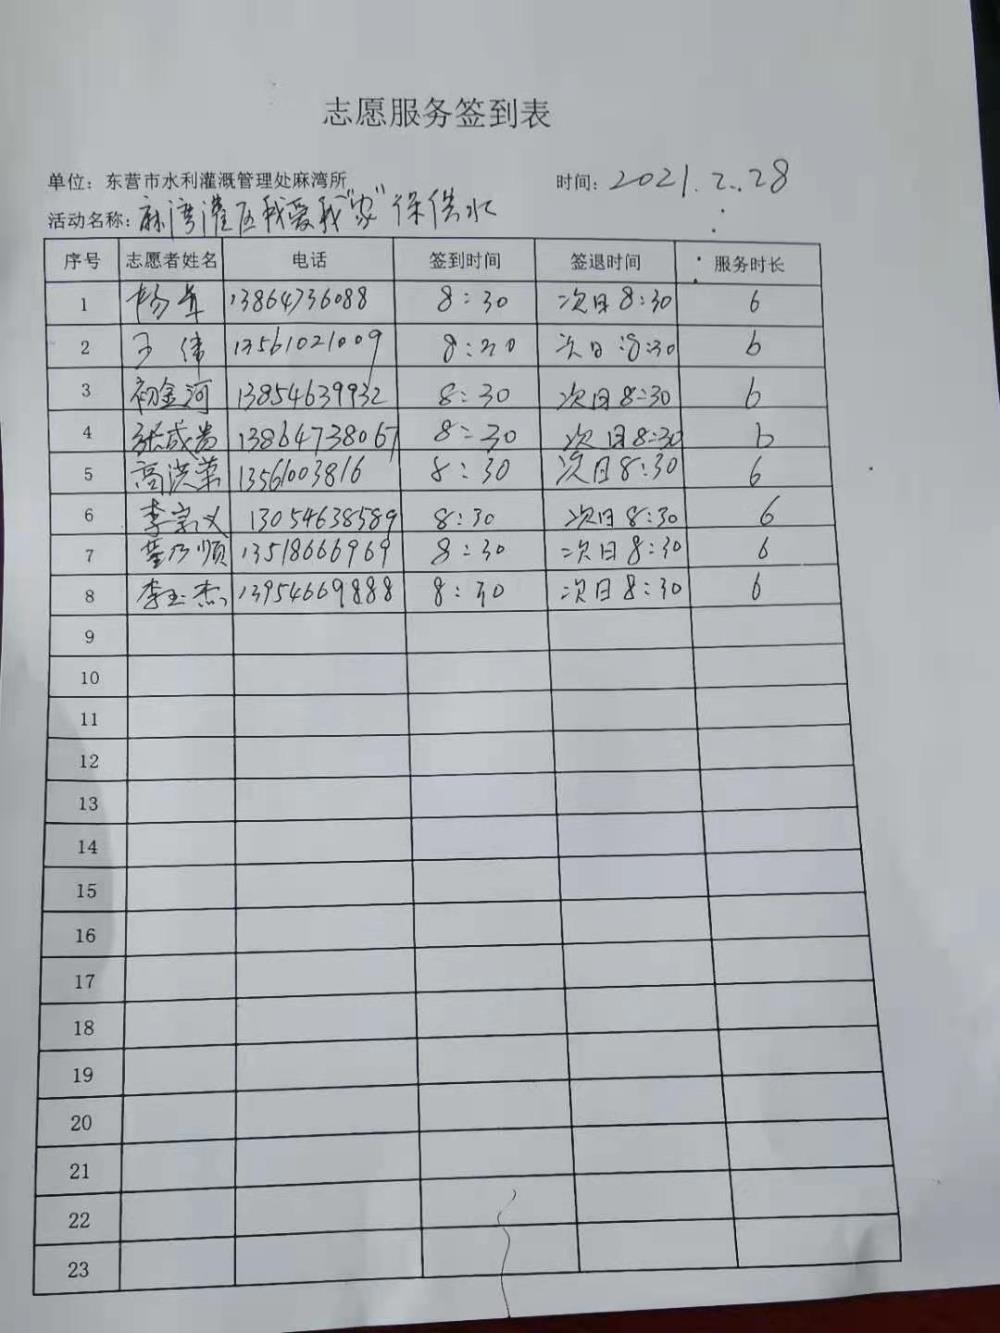 志愿服务签到表
单位：东营市水利灌溉管理处麻湾所 时间：2021.2.28
活动名称：麻湾灌区我爱我“家”保供水
序号 志愿者姓名 电话 签到时间 签退时间 服务时长
1 杨军 13864736088 8:30 次日8:30 6
2 王伟 13561021009 8:30 次日:8:30 6
3 初金河 13854639932 8:30 次日8:30 6
4 张成贵 13864738067 8:30 次日8:30 6
5 高洪荣 13561003816 8:30 次日8:30 6
6 李宗义 13054638589 8:30 次日8:30 6
7 董乃顺 13518666969 8:30 次日8:30 6
8 李玉杰 13954669888 8:30 次日8:30 6
9
10
11
12
13
14
15
16
17
18
19
20
21
22
23